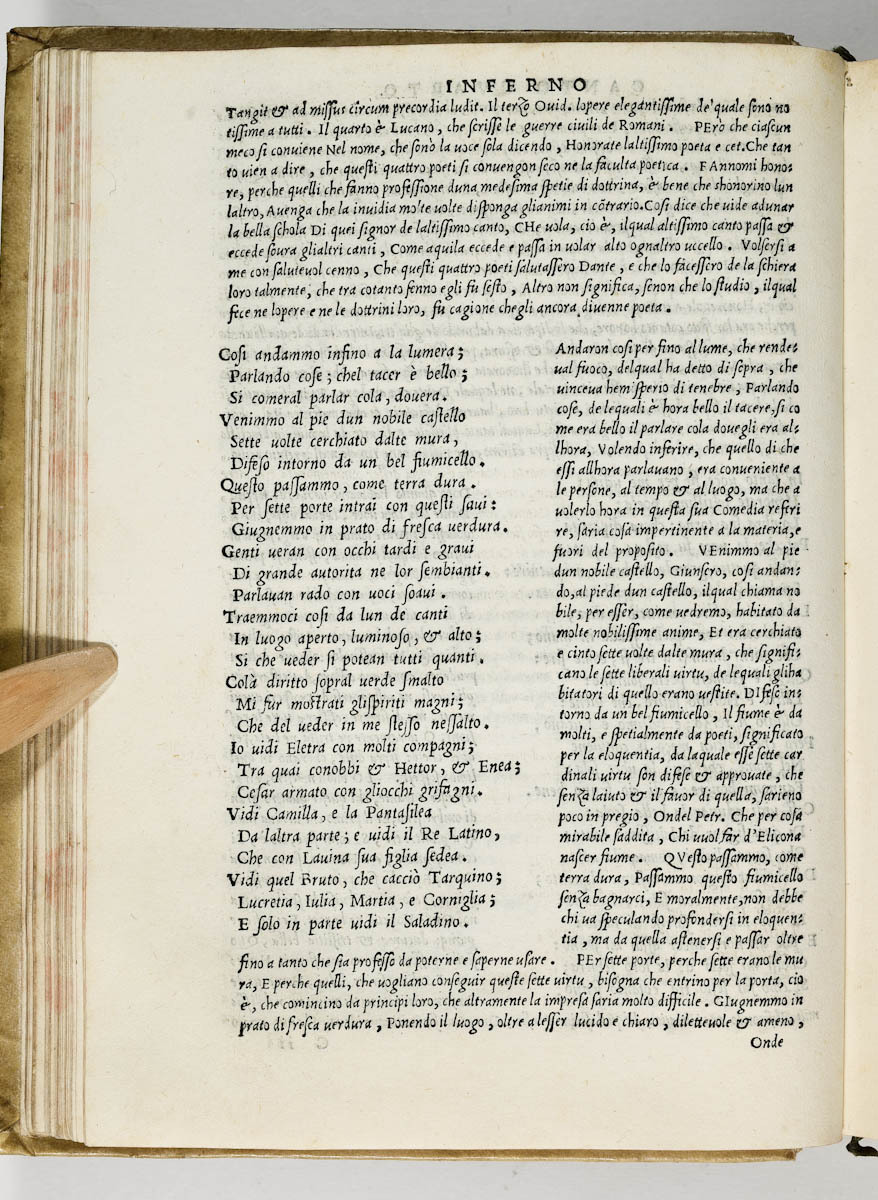 INFERNO
Tangit & ad missus circum precordia ludit. Il terzo Ouid. lopere elegantissime de'quale sono no
tissime a tutti. Il quarto è Lucano, che scrisse le guerre ciuili de Romani. PErò che ciascun
meco si conuiene Nel nome, che sonò la uoce sola dicendo, Honorate laltissimo poeta e cet. Che tan
to uien a dire, che questi quattro poeti si conuengon seco ne la faculta poetica. FAnnomi hono-
re, perche quelli che fanno professione duna medesima spetie di dottrina, è bene che shonorino lun
laltro, Auenga che la inuidia molte uolte disponga glianimi in cõtrario. Cosi dice che uide adunar
la bella schola Di quei signor de laltissimo canto, CHe uola, cio è, ilqual altissimo canto passa &
eccede soura glialtri canti, Come aquila eccede e passa in uolar alto ognaltro uccello. Volsersi a
me con saluteuol cenno, Che questi quattro poeti salutassero Dante, e che lo facessero de la schiera
loro talmente, che tra cotanto senno egli fu sesto, Altro non significa, senon che lo studio, ilqual
fece ne lopere e ne le dottrini loro, fu cagione chegli ancora diuenne poeta.
Cosi andammo infino a la lumera;
Parlando cose; chel tacer è bello;
Si comeral parlar cola, douera.
Venimmo al pie dun nobile castello
Sette uolte cerchiato dalte mura,
Difeso intorno da un bel fiumicello.
Questo passammo, come terra dura.
Per sette porte intrai con questi saui:
Giugnemmo in prato di fresca uerdura.
Genti ueran con occhi tardi e graui
Di grande autorita ne lor sembianti.
Parlauan rado con uoci soaui.
Traemmoci cosi da lun de canti
In luogo aperto, luminoso, & alto;
Si che ueder si potean tutti quanti.
Colà diritto sopral uerde smalto
Mi fur mostrati glispiriti magni;
Che del ueder in me stesso nessalto.
Io uidi Eletra con molti compagni;
Tra quai conobbi & Hettor, & Enea;
Cesar armato con gliocchi grifagni.
Vidi Camilla, e la Pantasilea
Da laltra parte; e uidi il Re Latino,
Che con Lauina sua figlia sedea.
Vidi quel Bruto, che cacciò Tarquino;
Lucretia, Iulia, Martia, e Corniglia;
E solo in parte uidi il Saladino.
Andaron cosi per fino al lume, che rende-
ual fuoco, delqual ha detto di sopra, che
uinceua hemisperio di tenebre, Parlando
cose, de lequali è hora bello il tacere, si co
me era bello il parlare cola douegli era al-
lhora, Volendo inferire, che quello di che
essi allhora parlauano, era conueniente a
le persone, al tempo & al luogo, ma che a
uolerlo hora in questa sua Comedia referi
re, saria cosa impertinente a la materia, e
fuori del proposito. VEnimmo al pie
dun nobile castello, Giunsero, cosi andan-
do, al piede dun castello, ilqual chiama no
bile, per esser, come uedremo, habitato da
molte nobilissime anime, Et era cerchiato
e cinto sette uolte dalte mura, che signifi-
cano le sette liberali uirtu, de lequali gliha
bitatori di quello erano uestite. DIfeso in-
torno da un bel fiumicello, Il fiume è da
molti, e spetialmente da poeti, significato
per la eloquentia, da laquale esse sette car
dinali uirtu son difese & approuate, che
senza laiuto & il fauor di quella, sarieno
poco in pregio, Ondel Petr. Che per cosa
mirabile saddita, Chi uuol far d'Elicona
nascer fiume. QVesto passammo, come
terra dura, Passammo questo fiumicello
senza bagnarci, E moralmente, non debbe
chi ua speculando profondersi in eloquen-
tia, ma da quella astenersi e passar oltre
fino a tanto che sia professo da poterne e saperne usare. PEr sette porte, perche sette erano le mu
ra, E perche quelli, che uogliano conseguir queste sette uirtu, bisogna che entrino per la porta, cio
è, che comincino da principi loro, che altramente la impresa saria molto difficile. GIugnemmo in
prato di fresca uerdura, Ponendo il luogo, oltre a lesser lucido e chiaro, diletteuole & ameno,
Onde